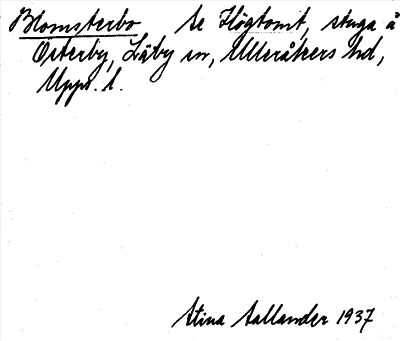 Blomsterbo se Högtomt, stuga å
Österby, Läby sn, Ulleråkers hd,
Upps. l.
Stina Sallander 1937